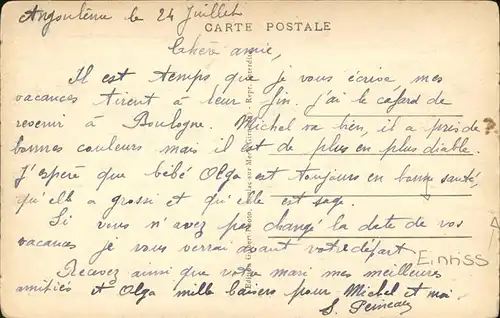 Angoulême le 24 Juillet
CARTE POSTALE
Chère amie,
Il est temps que je vous écrive mes
vacances tirent à leur fin. j'ai le cafard de
revenir à Boulogne. Michel va bien, il a pris de
bonnes couleurs mais il est de plus en plus diable.
J'espère que bébé Olga est toujours en bonne santé,
qu'elle a grossi et qu'elle est sage.
Si vous n'avez pas changé la date de vos
vacances je vous verrai avant votre départ
Einriss
Recevez ainsi que votre mari mes meilleures
amitiés et Olga mille baisers pour Michel et moi
S.